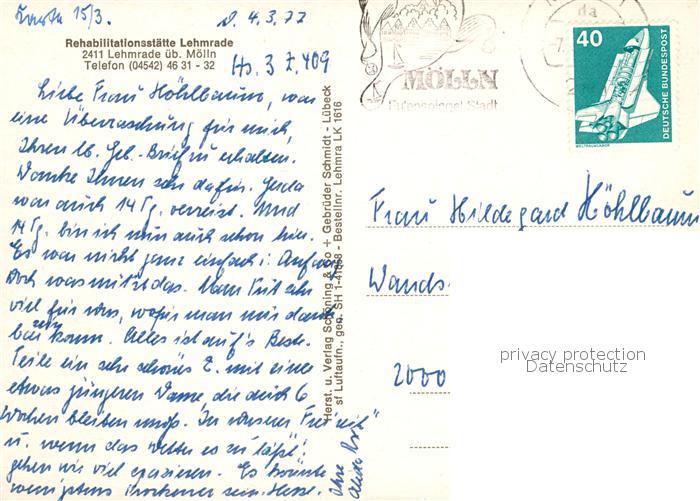 15/3.
d. 4.3.77
Rehabilitationsstätte Lehmrade
2411 Lehmrade üb. Mölln
Telefon (04542) 46 31 - 32
Hs. 3 Z. 409
Liebe Frau Höhlbaum, war
eine Überraschung für mich,
Ihren lb. Geb.-Brief zu erhalten.
Danke Ihnen sehr dafür. Gerda
war auch 14 Tg. verreist. Und
14 Tg. bin ich nun auch schon hier.
Es war nicht ganz einfach i. Anfang
Doch was nützt das. Man tut sehr
viel für uns, wofür man nur dank-
bar sein kann. Alles ist auf's Beste.
Teile ein sehr schönes Z. mit einer
etwas jüngeren Dame, die auch 6
Wochen bleiben muß. In unserer "Freizeit"
u. wenn das Wetter es zuläßt,
gehen wir viel spazieren. Es könnte
wenigstens trockener sein.
Ihre
Herst. u. Verlag Schöning & Co + Gebrüder Schmidt - Lübeck
sf Luftaufn., gen. SH 1-41 - Bestellnr. Lehmra LK 1616
MÖLLN
Eulenspiegel Stadt
da
7.
2
40
DEUTSCHE BUNDESPOST
WELTRAUMLABOR
Frau Hildegard Höhlbaum
Wands.
2000
privacy protection
Datenschutz